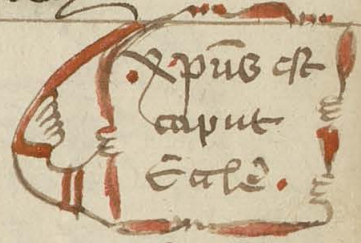 xpūs est
caput
Eccłē.